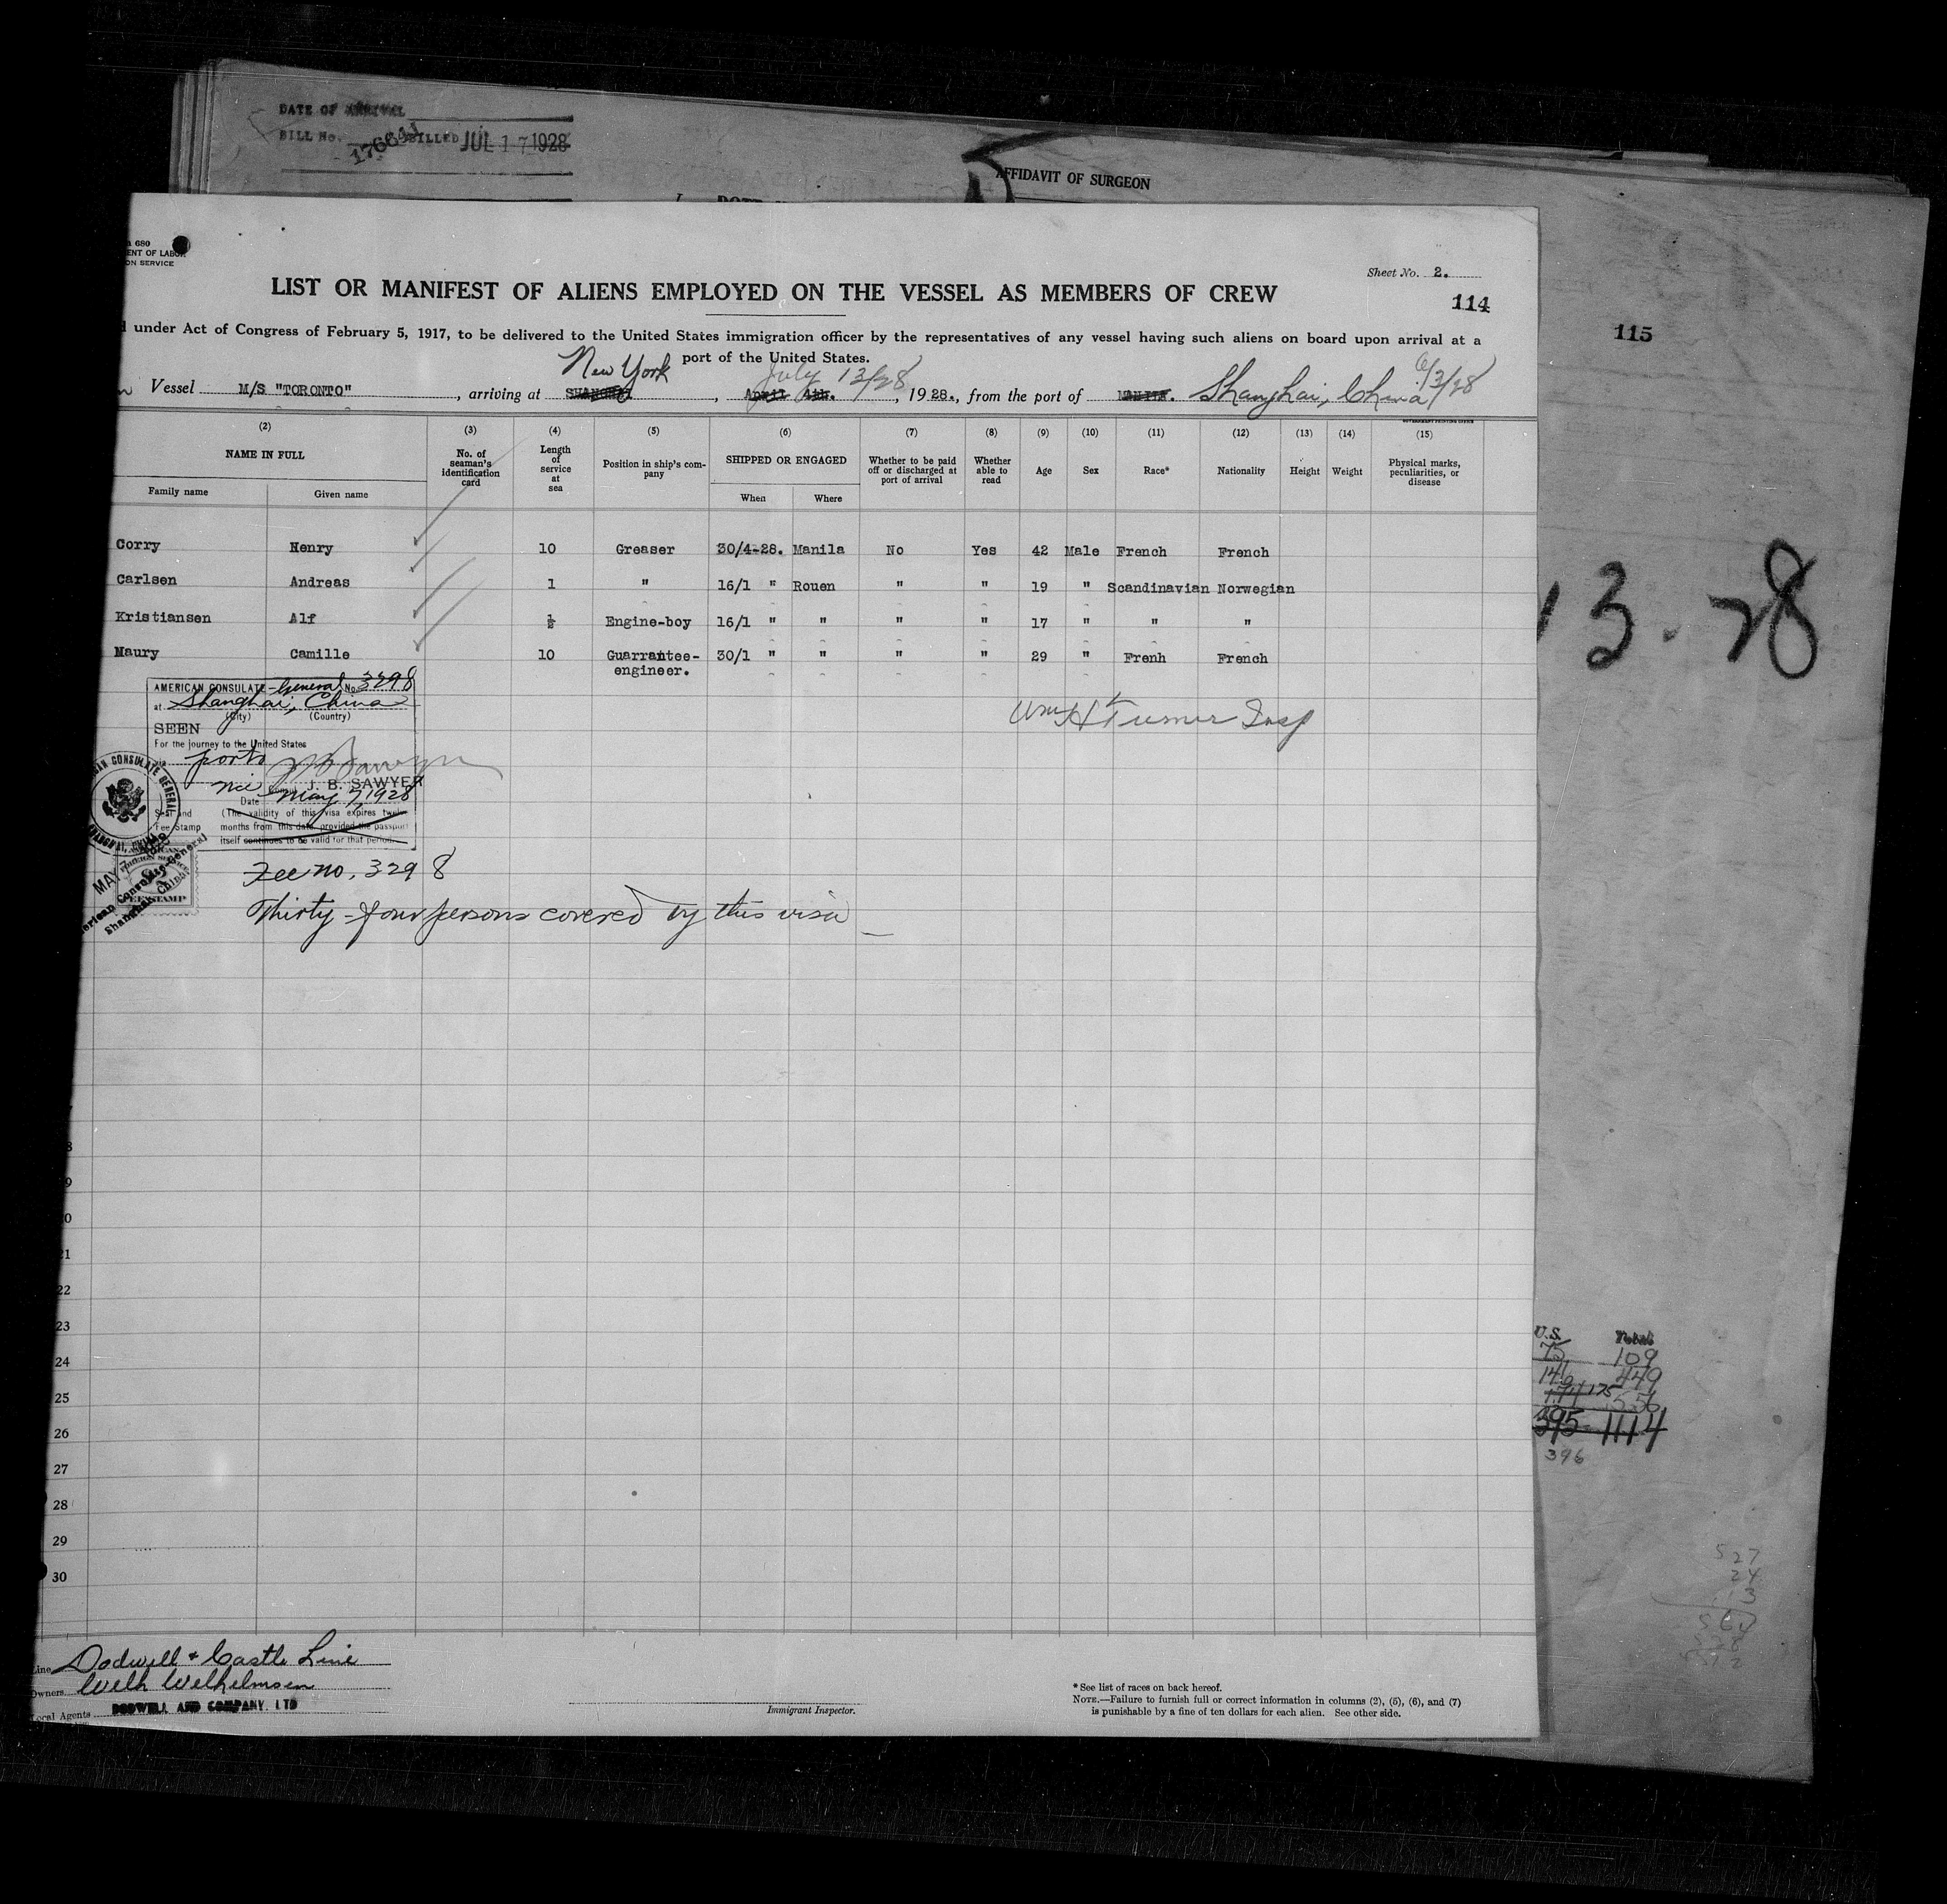 DATE OF ARRIVAL
BILL No. BILLED JUL 17 1928
AFFIDAVIT OF SURGEON
680
ENT OF LABOR
ON SERVICE
Sheet No. 2.
LIST OR MANIFEST OF ALIENS EMPLOYED ON THE VESSEL AS MEMBERS OF CREW
114
115
under Act of Congress of February 5, 1917, to be delivered to the United States immigration officer by the representatives of any vessel having such aliens on board upon arrival at a
port of the United States.
New York July 13/28 6/3/28
Vessel M/S "TORONTO", arriving at SHANGHAI, April 4th., 1928., from the port of MANILA. Shanghai, China
(2) (3) (4) (5) (6) (7) (8) (9) (10) (11) (12) (13) (14) (15)
NAME IN FULL No. of seaman's identification card Length of service at sea Position in ship's company SHIPPED OR ENGAGED Whether to be paid off or discharged at port of arrival Whether able to read Age Sex Race* Nationality Height Weight Physical marks, peculiarities, or disease
Family name Given name When Where
Corry Henry 10 Greaser 30/4-28. Manila No Yes 42 Male French French
Carlsen Andreas 1 " 16/1 " Rouen " " 19 " Scandinavian Norwegian
Kristiansen Alf ½ Engine-boy 16/1 " " " " 17 " " "
Maury Camille 10 Guarrantee- 30/1 " " " " 29 " Frenh French
engineer.
AMERICAN CONSULATE-General No. 3298
at Shanghai, China
(City) (Country)
SEEN
For the journey to the United States
ports
J. B. SAWYER
Date May 7, 1928
Seal and (The validity of this visa expires twelve
Fee Stamp months from this date provided the passport
itself continues to be valid for that period.
Wm H Turner Insp
AN CONSULATE GENERAL
SHANGHAI, CHINA
MAY 7
American Consulate-General
Shanghai China
FEE STAMP
Fee no. 3298
Thirty-four persons covered by this visa
13-28
U.S. Total
75 109
146 449
174 175 556
395 1114
396
21
22
23
24
25
26
27
28
29
30
527
24
Line Dodwell & Castle Line
Owners Wilh Wilhelmsen
Local Agents DODWELL AND COMPANY. LTD
Immigrant Inspector.
* See list of races on back hereof.
NOTE.—Failure to furnish full or correct information in columns (2), (5), (6), and (7)
is punishable by a fine of ten dollars for each alien. See other side.